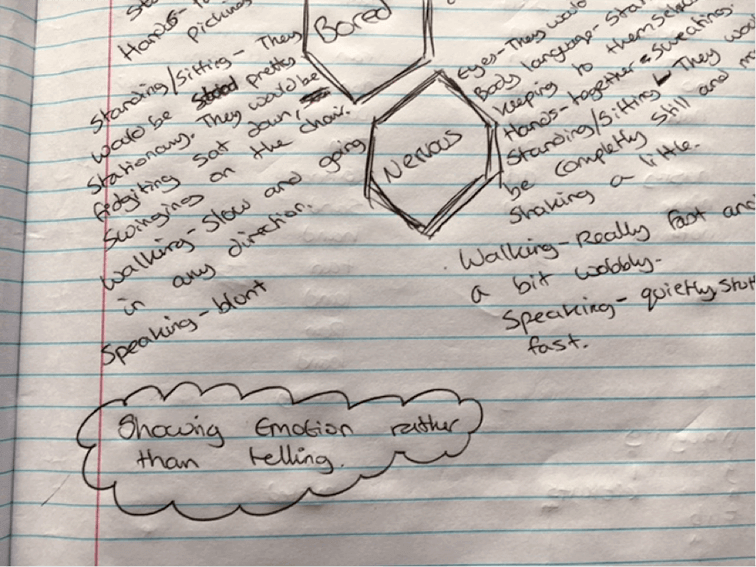 Sta
Hands-
picking
Standing/sitting- They
would be pretty
Stationary. They would be
fidgiting sat down,
Swinging on the chair.
Walking- Slow and going
in any direction.
Speaking- blunt
Bored
Nervous
Eyes- They would
Body language- Star
keeping to themsel
Hands- together & sweating.
Standing/sitting- They wou
be completly still and m
Shaking a little.
Walking- Really fast and
a bit wobbly-
Speaking- quietly, stutt
fast.
Showing Emotion rather
than telling.